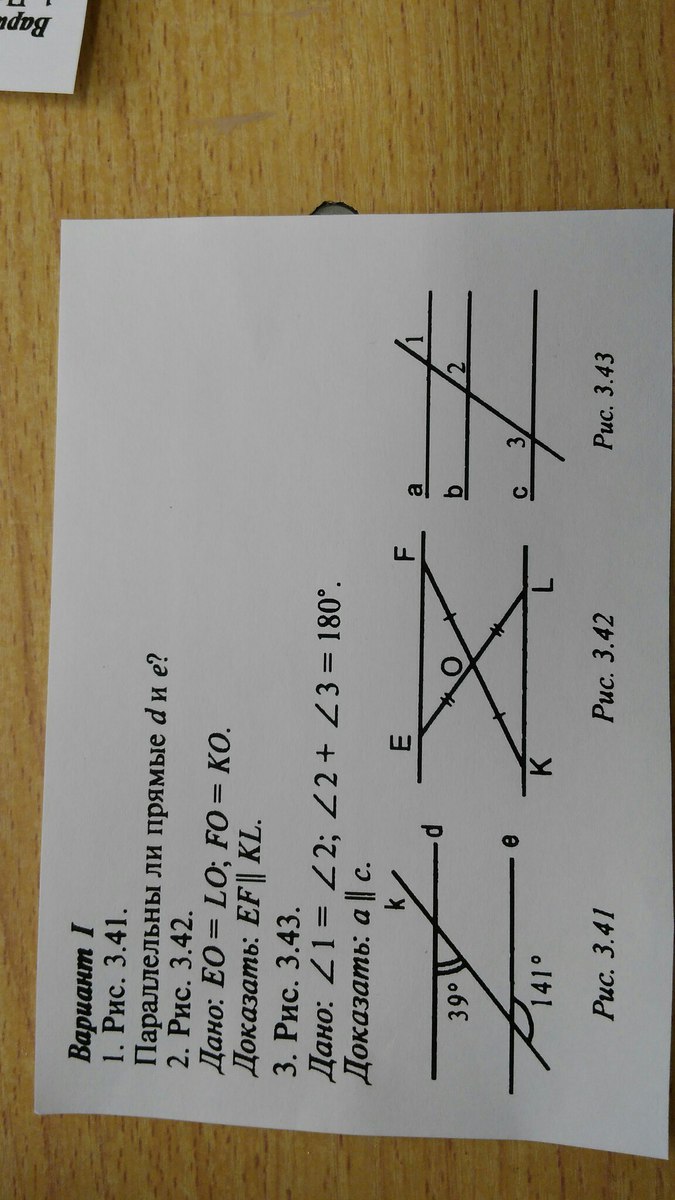 Вариант I
1. Рис. 3.41.
Параллельны ли прямые d и e?
2. Рис. 3.42.
Дано: EO = LO; FO = KO.
Доказать: EF ∥ KL.
3. Рис. 3.43.
Дано: ∠1 = ∠2; ∠2 + ∠3 = 180°.
Доказать: a ∥ c.
k
d
39°
e
141°
Рис. 3.41
E
F
O
K
L
Рис. 3.42
a
1
b
2
c
3
Рис. 3.43